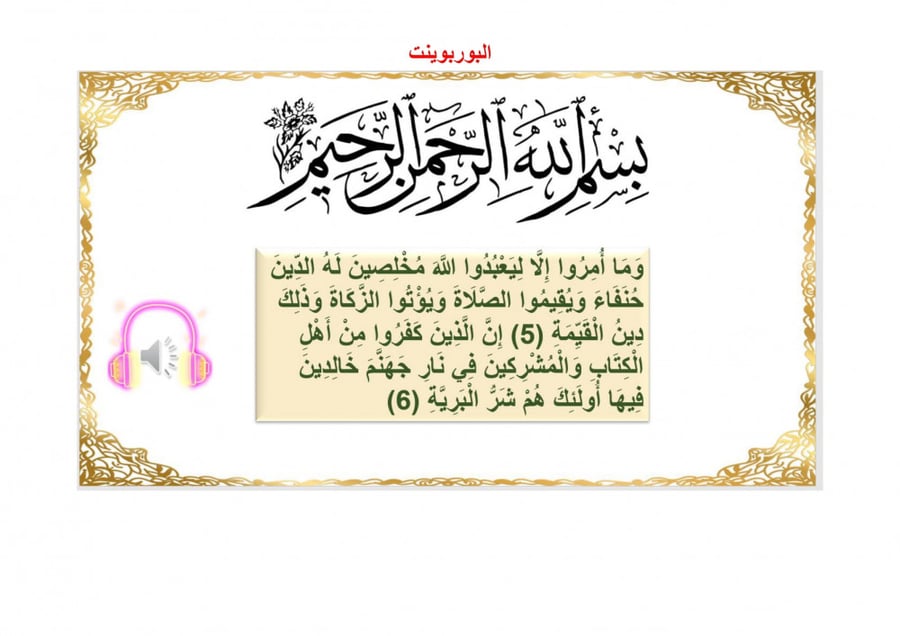 البوربوينت
بِسْمِ اللَّهِ الرَّحْمَنِ الرَّحِيمِ
وَمَا أُمِرُوا إِلَّا لِيَعْبُدُوا اللَّهَ مُخْلِصِينَ لَهُ الدِّينَ
حُنَفَاءَ وَيُقِيمُوا الصَّلَاةَ وَيُؤْتُوا الزَّكَاةَ وَذَلِكَ
دِينُ الْقَيِّمَةِ (5) إِنَّ الَّذِينَ كَفَرُوا مِنْ أَهْلِ
الْكِتَابِ وَالْمُشْرِكِينَ فِي نَارِ جَهَنَّمَ خَالِدِينَ
فِيهَا أُولَئِكَ هُمْ شَرُّ الْبَرِيَّةِ (6)